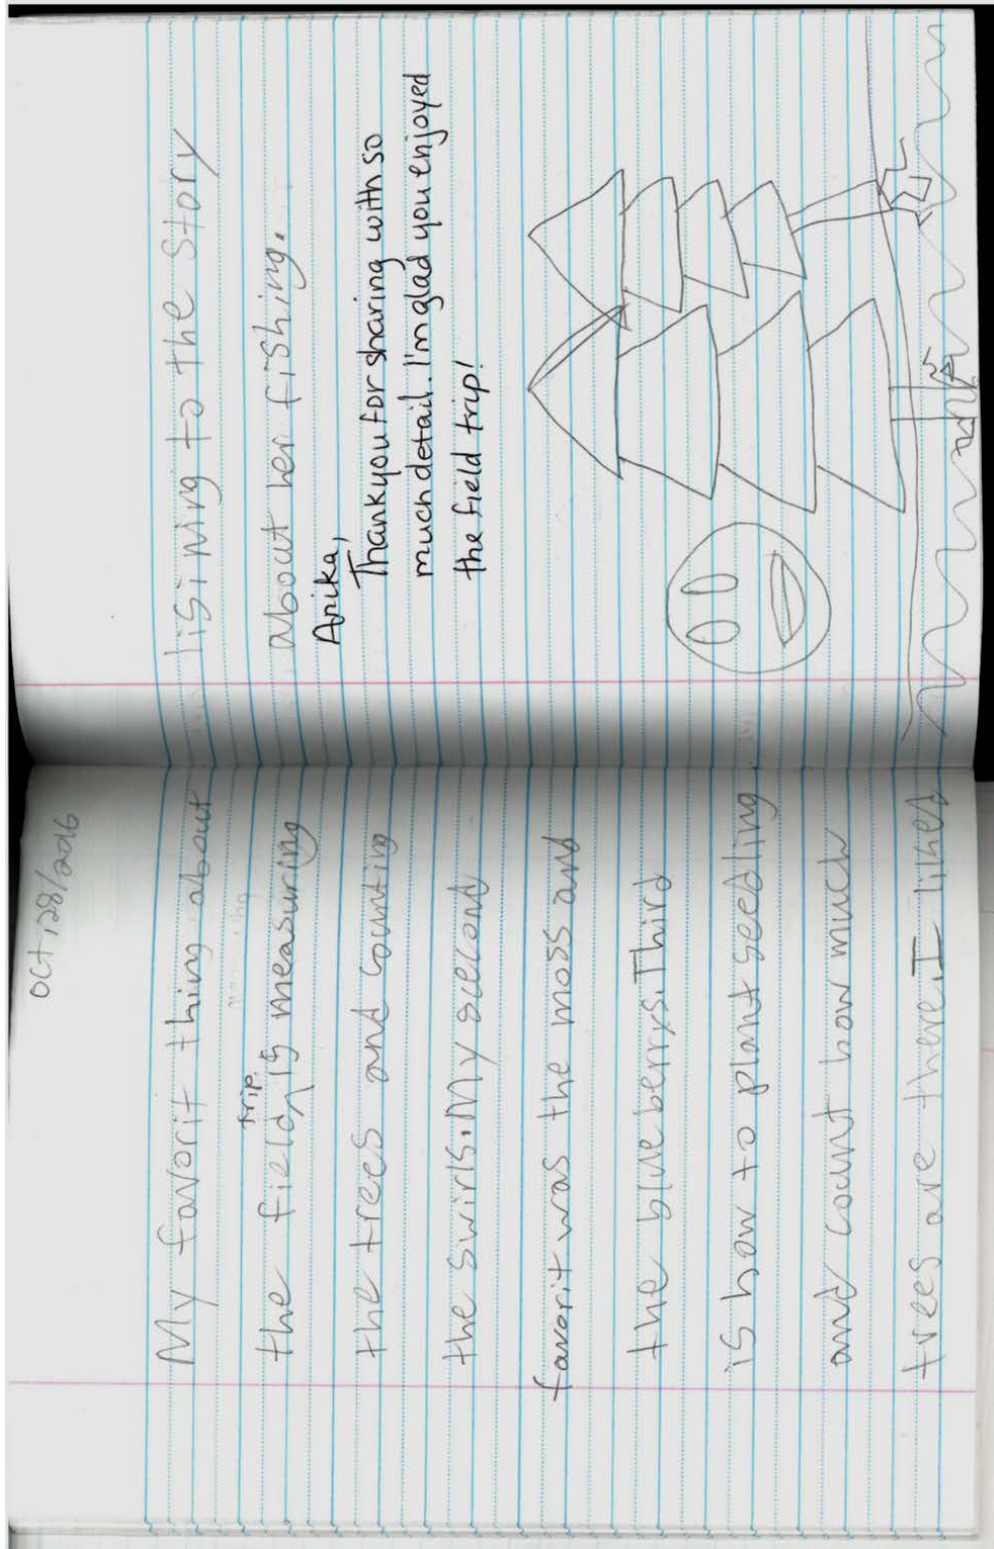 Oct, 28/2016
My favorit thing about
trip.
the field ^ is measuring
the trees and counting
the swirls. My seecond
favorit was the moss and
the blue berrys. Third
is how to plant seedling
and count how much
trees are there. I liked
lisining to the Story
about her fishing.
Anika,
Thank you for sharing with so
much detail. I'm glad you enjoyed
the field trip!